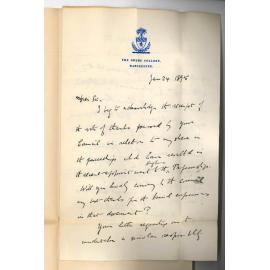 THE OWENS COLLEGE,
MANCHESTER.
Jan 24 1895
Dear Sir,
I beg to acknowledge the receipt of
the vote of thanks passed by your
Council in relation to my share in
the proceedings which have resulted in
the recent appointment to the
Will you kindly convey to the
my best thanks for the kind expressions
in that document?
Your letter requesting me to
undertake a similar responsibility